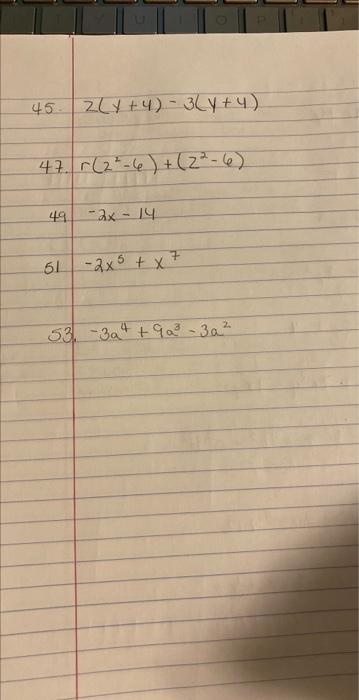 45. z(y+4) - 3(y+4)
47. r(z²-6)+(z²-6)
49 -2x - 14
51 -2x⁵ + x⁷
53. -3a⁴ + 9a³ - 3a²